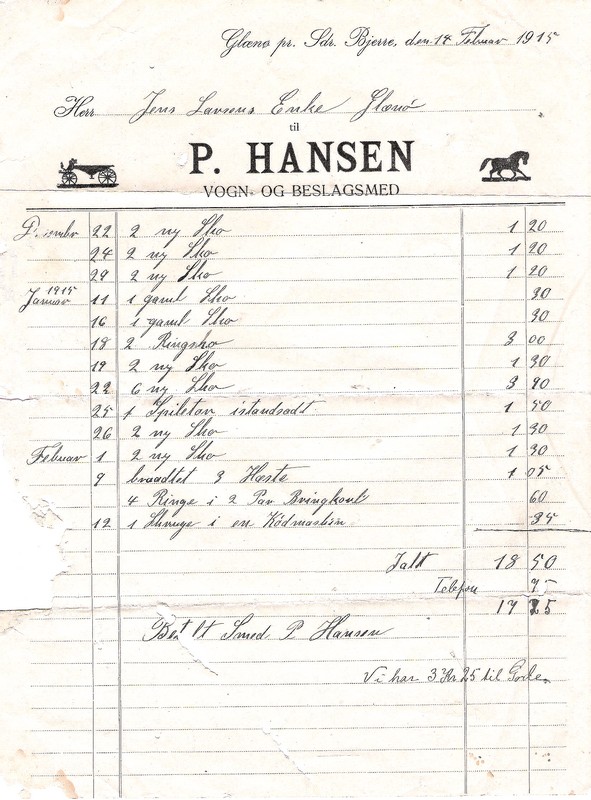 Glænø pr. Sdr. Bjerre, den 18 Februar 1915
Herr Jens Larsens Enke Glænø
til
P. HANSEN
VOGN- OG BESLAGSMED
December 22 2 ny Sko 1 20
24 2 ny Sko 1 20
29 2 ny Sko 1 20
1915
Januar 11 1 gaml Sko 30
16 1 gaml Sko 30
18 2 Ringsko 3 00
19 2 ny Sko 1 30
22 6 ny Sko 3 90
25 1 istandsadt 1 50
26 2 ny Sko 1 30
Februar 1 2 ny Sko 1 30
9 braadtet 3 Heste 1 05
4 Ringe i 2 Par 60
12 1 Skruge i en Kødmaskin 35
Ialt 18 50
Telefon
17 25
Bet lt Smed P Hansen
Vi har 3 Kr 25 til Gode